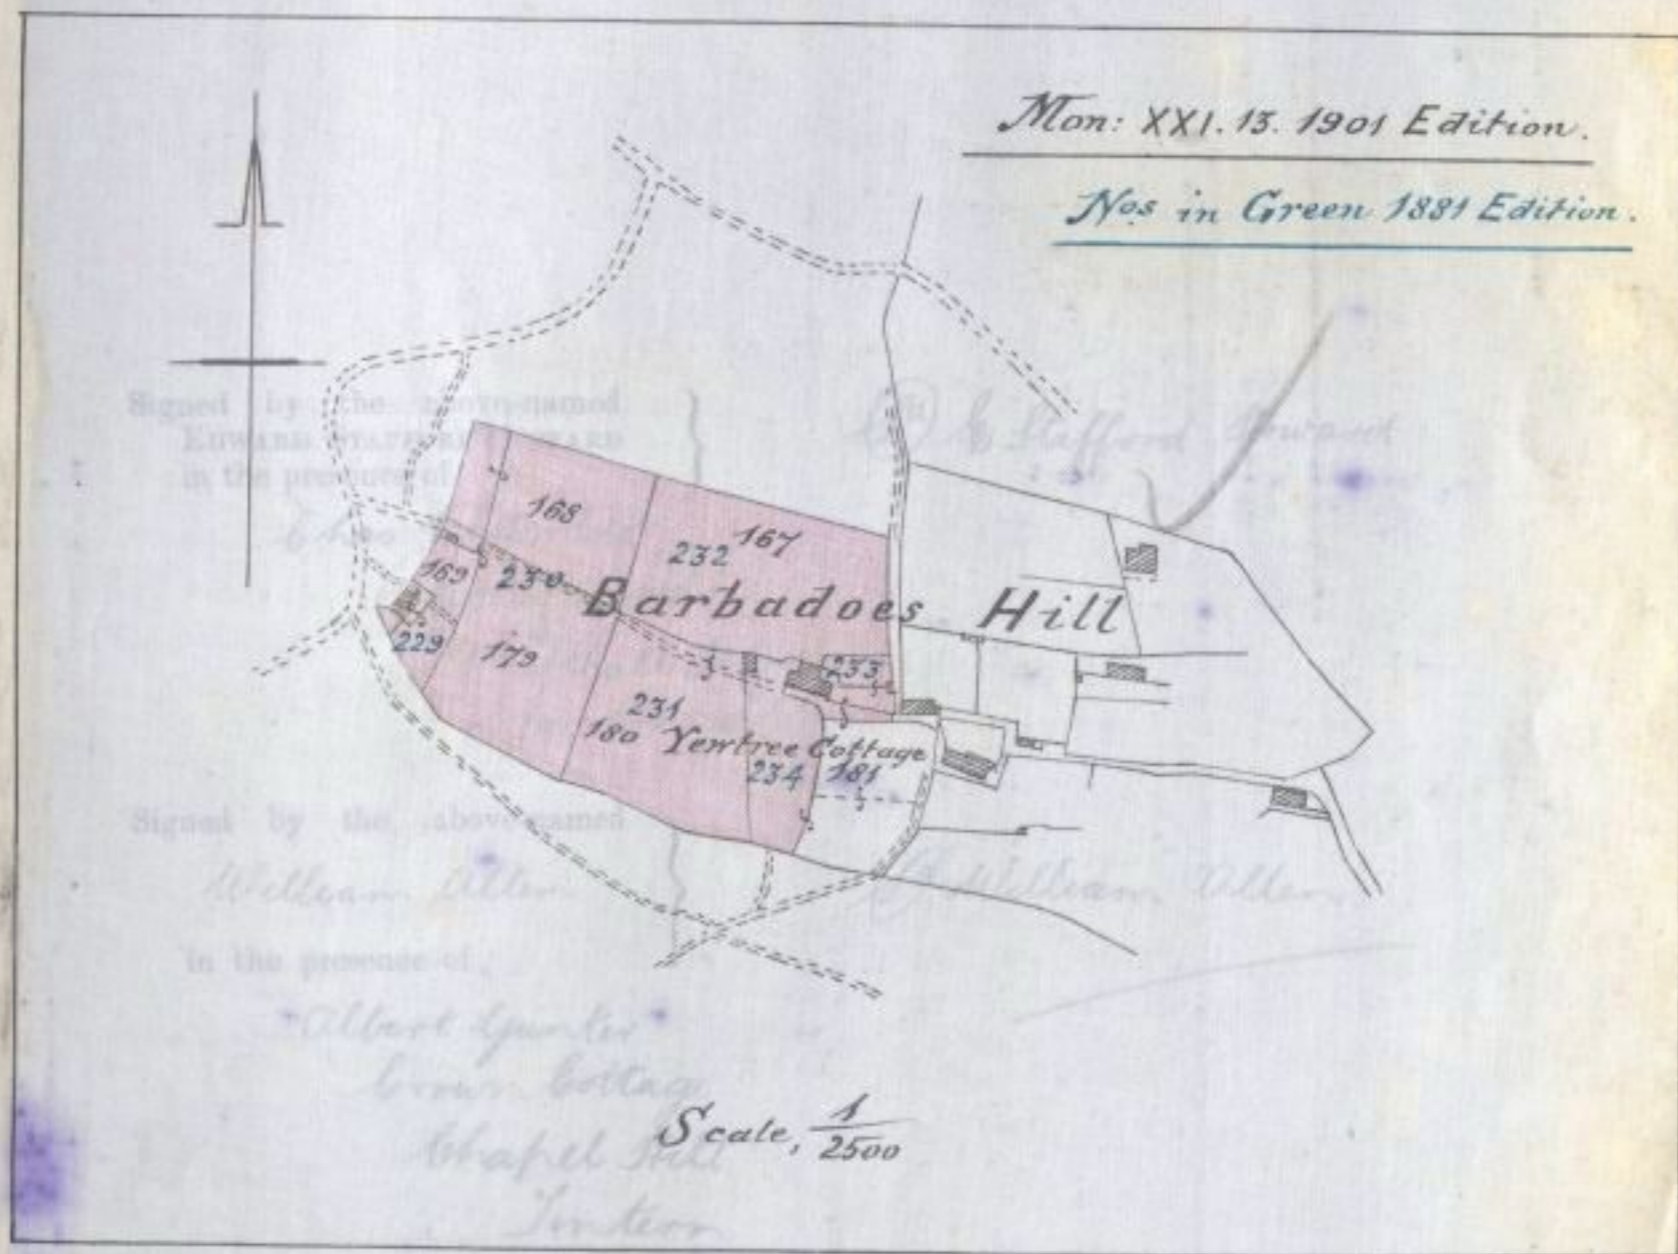 Mon: XXI. 13. 1901 Edition.
Nos in Green 1881 Edition.
Signed by the above-named
EDWARD STAFFORD HOWARD
in the presence of
E Stafford Howard
168
167
232
169
230
Barbadoes Hill
229
179
233
231
180 Yewtree Cottage
234 181
Signed by the above-named
William Allen
William Allen
in the presence of
Albert Gunter
Crown Cottage
Chapel Hill
Tintern
Scale, 1/2500